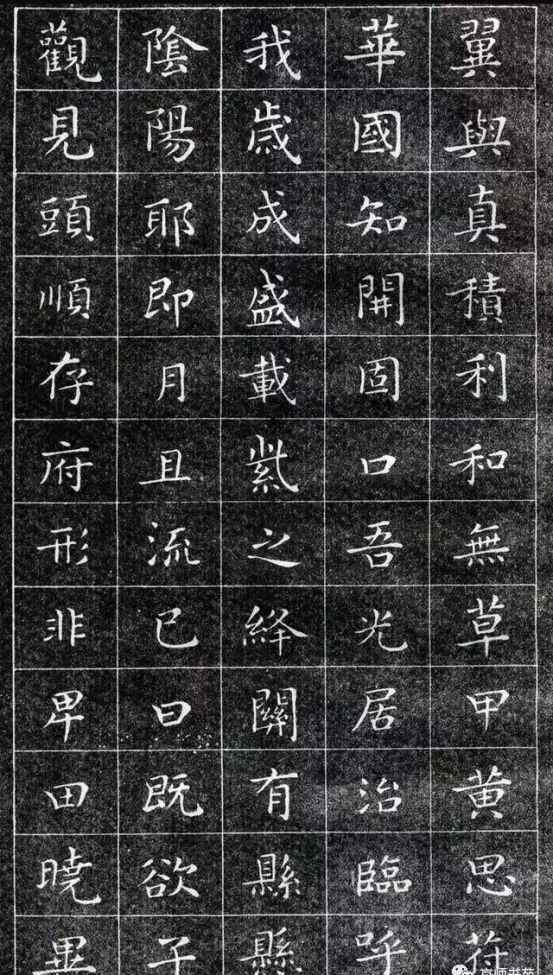 翼與真積利和無草甲黃思荷
華國知開固口吾光居治臨呼
我歲成盛載紫之絳關有縣縣
陰陽耶即月且流已曰既欲子
觀見頭順存府形非卑田曉畢